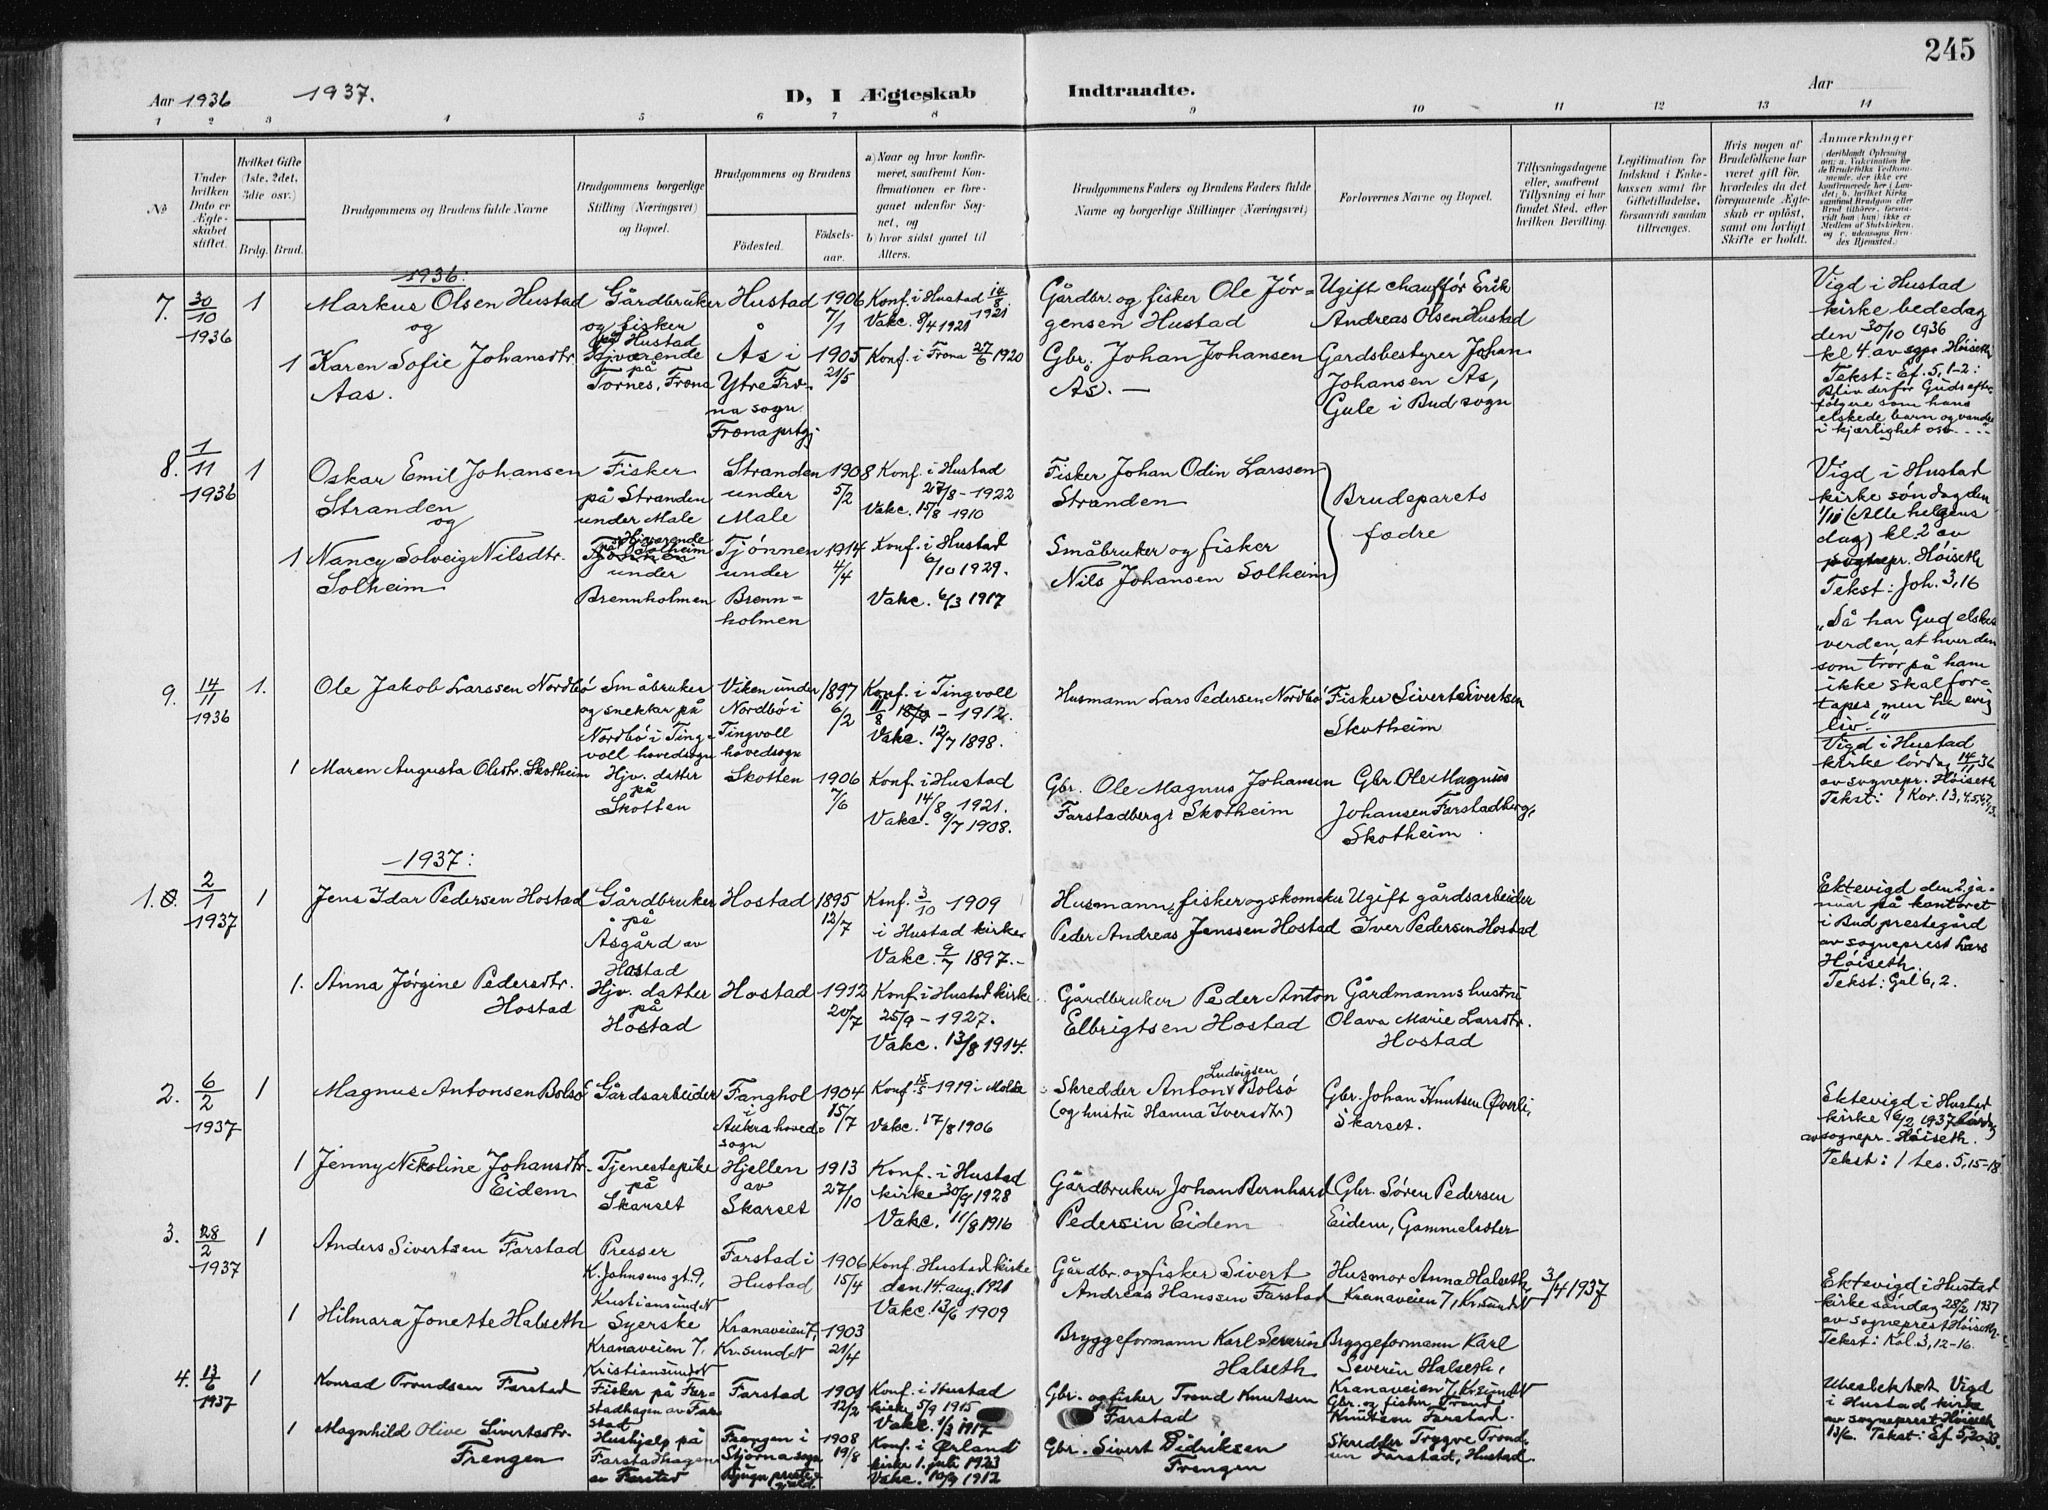 245
Aar 1936 1937.
D, I Ægteskab Indtraadte.
Aar
1 2 3 4 5 6 7 8 9 10 11 12 13 14
No
Under hvilken Dato er Ægteskabet stiftet.
Hvilket Gifte (1ste, 2det, 3die osv.)
Brdg. Brud.
Brudgommens og Brudens fulde Navne
Brudgommens borgerlige Stilling (Næringsvei) og Bopæl.
Brudgommens og Brudens
Fødested.
Fødselsaar.
a) Naar og hvor konfirmeret, saafremt Konfirmationen er foregaaet udenfor Sognet, og
b) hvor sidst gaaet til Alters.
Brudgommens Faders og Brudens Faders fulde Navne og borgerlige Stillinger (Næringsvei)
Forlovernes Navne og Bopæl.
Tillysningsdagene eller, saafremt Tillysning ei har fundet Sted, efter hvilken Bevilling.
Legitimation for Indskud i Enkekassen samt for Giftetilladelse, forsaavidt saadan tiltrænges.
Hvis nogen af Brudefolkene har været gift før, hvorledes da det foregaaende Ægteskab er opløst, samt om lovligt Skifte er holdt.
Anmærkninger
1936:
7. 30/10 1936
1
Markus Olsen Hustad
og
Gårdbruker og fisker på Hustad
Hustad
1906 7/1
Konf. i Hustad 14/8 1921
Vakc. 8/4 1921
Gårdbr. og fisker Ole Jörgensen Hustad
Ugift chauffør Erik Andreas Olsen Hustad
Vigd i Hustad
kirke bededag
den 30/10 1936
kl 4 av sgpr. Höiseth
Tekst: Ef. 5, 1-2:
Bliv derfor Guds efterfölgere som hans
elskede barn og vandre
i kjærlighet osv
1
Karen Sofie Johansdtr. Aas.
Hjværende på Tornes, Fræna
Ås i Ytre Fræna sogn Fræna prtgj
1905 21/5
Konf. i Fræna 27/6 1920
Gbr. Johan Johansen Ås. —
Gardsbestyrer Johan Johansen Ås, Gule i Bud sogn
8. 1/11 1936
1
Oskar Emil Johansen Stranden
og
Fisker på Stranden under Male
Stranden under Male
1908 5/2
Konf. i Hustad 27/8 - 1922
Vakc. 15/8 1910
Fisker Johan Odin Larssen Stranden
Brudeparets fædre
Vigd i Hustad
kirke söndag den
1/11 (Alle helgens
dag) kl. 2 av
sognepr. Höiseth
Tekst: Joh. 3, 16
„Så har Gud elsket
verden, at hver den
som tror på ham
ikke skal fortapes, men ha evig
liv."
1
Nancy Solveig Nilsdtr. Solheim
Hjværende på Solheim under Brennholmen
Tjønnen under Brennholmen
1914 4/4
Konf. i Hustad 6/10 1929.
Vakc. 6/3 1917
Småbruker og fisker Nils Johansen Solheim
9. 14/11 1936
1.
Ole Jakob Larssen Nordbö
Småbruker og snekkar på Nordbö i Tingvoll hovedsogn
Viken under Nordbö i Tingvoll hovedsogn
1897 6/2
Konf. i Tingvoll 11/8 - 1912.
Vakc. 12/7 1898.
Husmann Lars Pedersen Nordbö
Fisker Sivert Sivertsen Skotheim
Vigd i Hustad
kirke lördag 14/11 36
av sognepr. Höiseth
Tekst: 1 Kor. 13, 4, 5, 47, 13.
1
Maren Augusta Olsdtr. Skotheim
Hjv. datter på Skotten
Skotten
1906 7/6
Konf. i Hustad 14/8 1921.
Vakc. 9/7 1908.
Gbr. Ole Magnus Johansen Farstadberg, Skotheim
Gbr. Ole Magnus Johansen Farstadberg, Skotheim
1937:
1. 2/1 1937
1
Jens Idar Pedersen Hostad
Gårdbruker på Åsgård av Hostad
Hostad
1895 12/7
Konf. 3/10 1909 i Hustad kirke
Vakc. 9/7 1897. -
Husmann, fisker og skomaker Peder Andreas Jenssen Hostad
Ugift gårdsarbeider Iver Pedersen Hostad
Ektevigd den 2. januar på kontoret
i Bud prestegård
av sogneprest Lars
Höiseth.
Tekst: Gal 6, 2.
1.
Anna Jörgine Pedersdtr. Hostad
Hjv. datter på Hostad
Hostad
1912 20/7
Konf. i Hustad kirke 25/9 - 1927.
Vakc. 13/8 1914.
Gårdbruker Peder Anton Elbrigtsen Hostad
Gårdmannshustru Olava Marie Larsdtr. Hostad
2. 6/2 1937
1
Magnus Antonsen Bolsö
Gårdsarbeider
Fanghol i Aukra hovedsogn
1904 15/7
Konf. 15/5 1919 i Molde
Vakc. 17/8 1906
Skredder Anton Ludvigsen Bolsö
(og hustru Hanna Iversdtr)
Gbr. Johan Knutsen Øverli, Skarset.
Ektevigd i Hustad
kirke 6/2 1937
av sognepr. Höiseth.
Tekst: 1 tes. 5, 15-18
1
Jenny Nikoline Johansdtr. Eidem
Tjenestepike på Skarset
Hjellen av Skarset
1913 27/10
Konf. i Hustad kirke 30/9 1928
Vakc. 11/8 1916
Gårdbruker Johan Bernhard Pedersen Eidem
Gbr. Søren Pedersen Eidem, Gammelseter
3. 28/2 1937
1
Anders Sivertsen Farstad
Presser K. Johnsens gt. 9, Kristiansund N
Farstad i Hustad
1906 15/4
Konf. Hustad kirke den 14. aug. 1921
Vakc. 13/6 1909
Gårdbr. og fisker Sivert Andreas Hanssen Farstad
Husmor Anna Halseth, Kranaveien 7, Kr.sund N
3/4 1937
Ektevigd i Hustad
kirke söndag 28/2 1937
av sogneprest Höiseth.
Tekst: Kol. 3, 12-16.
1
Hilmara Jonette Halseth
Syerske Kranaveien 7, Kristiansund N
Kranaveien 7, Kr.sund N
1903 21/4
Bryggeformann Karl Severin Halseth
Bryggeformann Karl Severin Halseth, Kranaveien 7, Kr.sund N
4. 13/6 1937
1
Konrad Trondsen Farstad
Fisker på Farstadhagen av Farstad
Farstad
1901 12/2
Konf. i Hustad kirke 5/9 1915
Vakc. 1/3 1917
Gbr. og fisker Trond Knutsen Farstad
Gbr. og fisker Trond Knutsen Farstad.
Ubeslektet Vigd
i Hustad kirke
av sogneprest Höiseth
13/6. Tekst: Ef 5, 20-33.
1
Magnhild Olive Sivertsdtr. Frengen
Hushjelp på Farstadhagen av Farstad
Frengen i Stjørna sogn Bjugn prestegjeld
1908 19/8
Konf. i Ørland kirke 1. juli 1923
Vakc. 10/9 1912
Gbr. Sivert Didriksen Frengen
Skredder Trygve Trondsen Farstad, Hustad